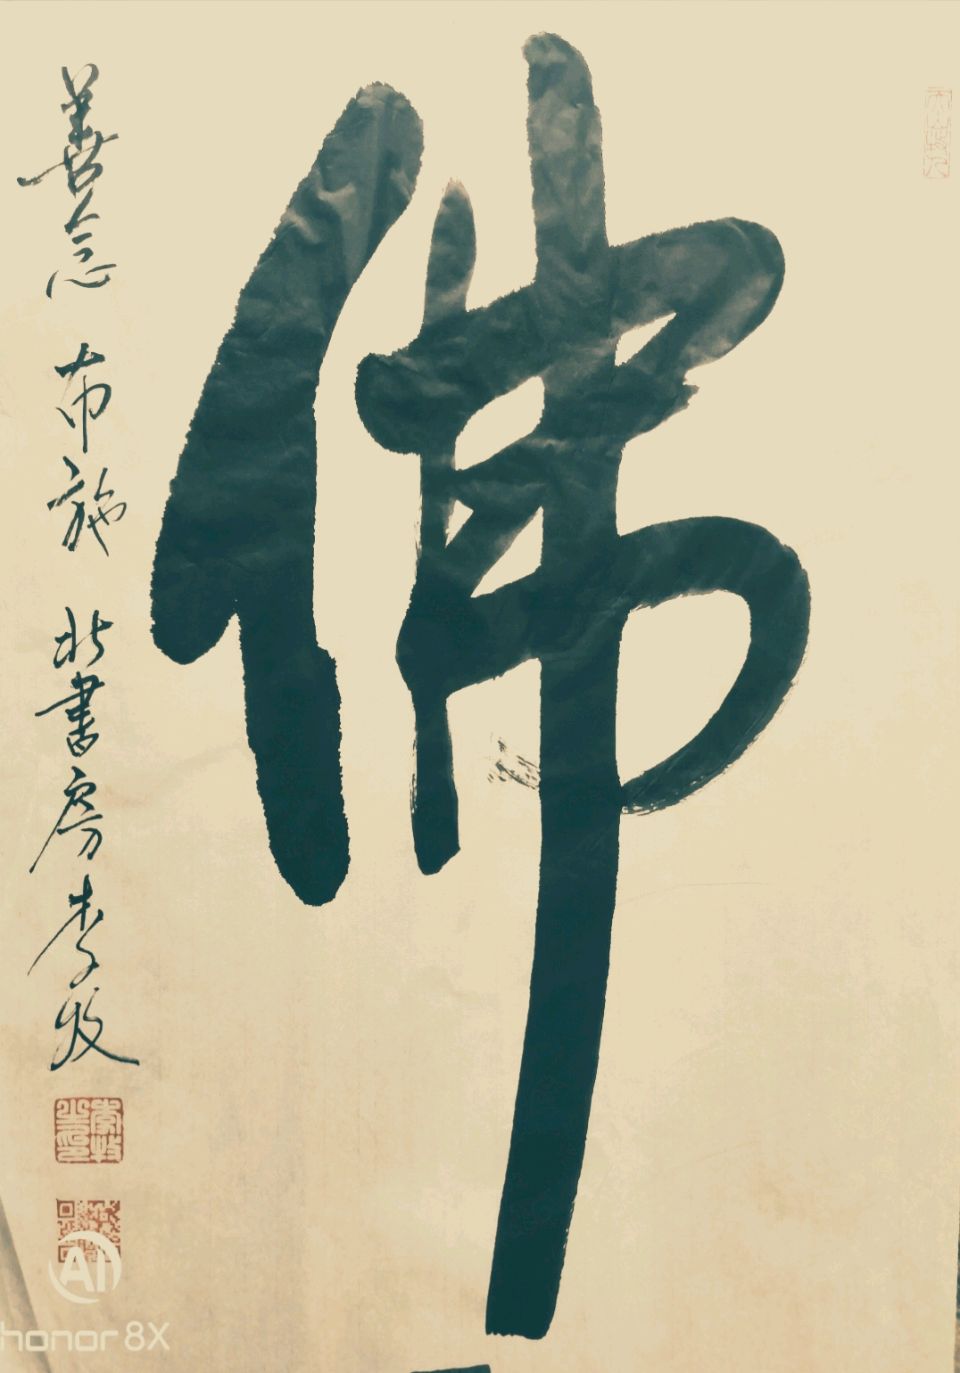 佛
善念 布施 北書房李牧
AI
honor 8X